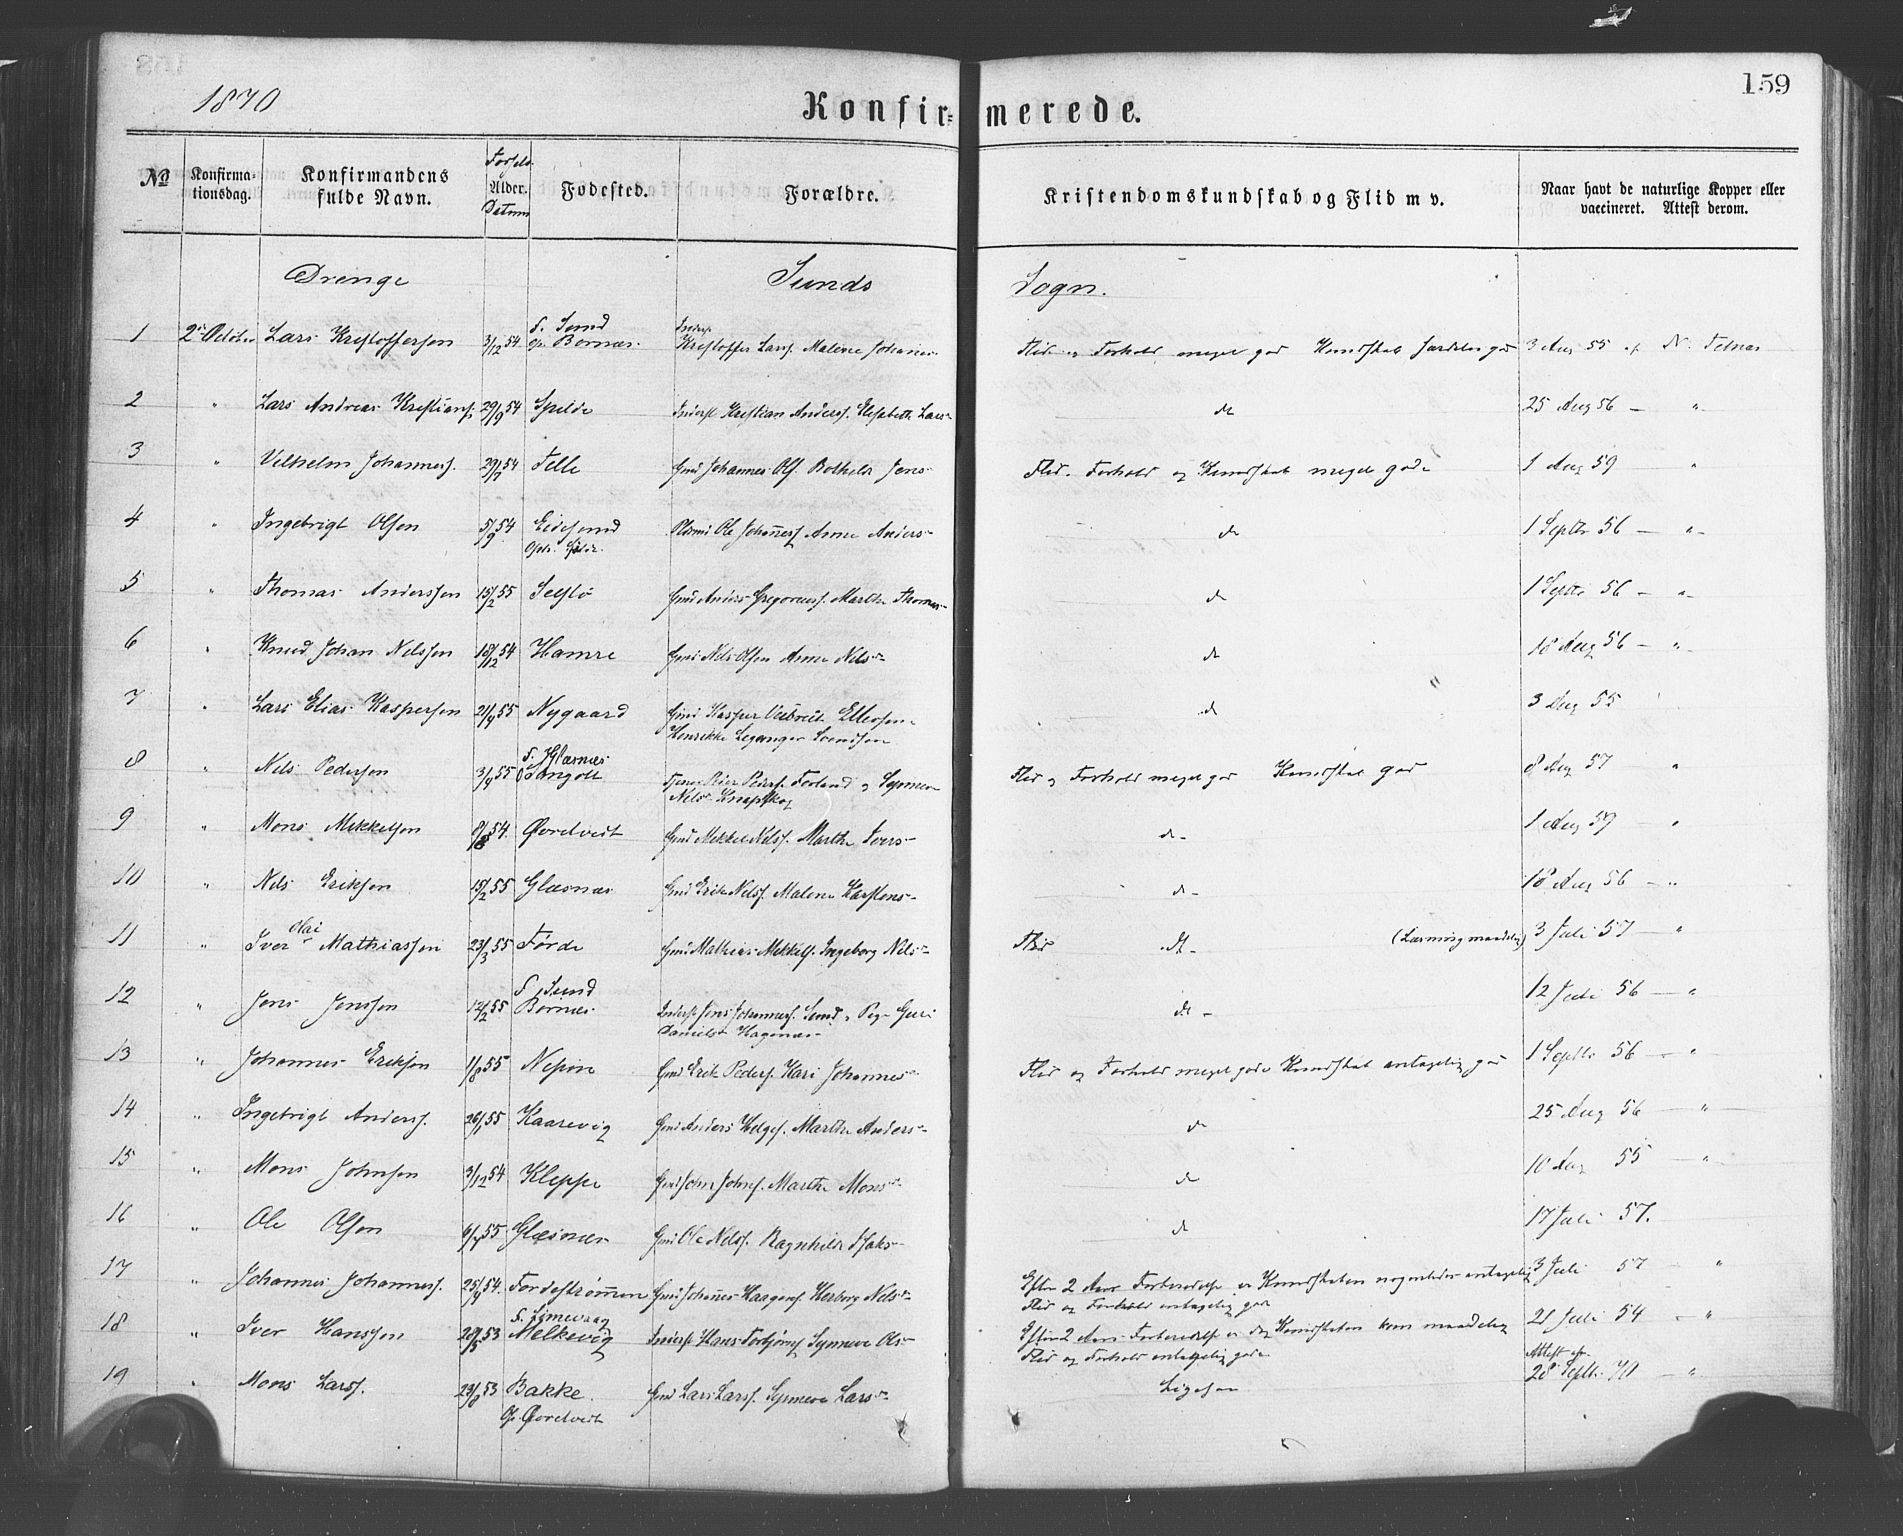 1870
Konfirmerede.
159
No
Konfirmationsdag.
Konfirmandens fulde Navn.
Fødsels Alder. Datum
Fødested.
Forældre.
Kristendomskundskab og Flid m v.
Naar havt de naturlige Kopper eller vaccineret. Attest derom.
Drenge Sunds Sogn.
1 2 Octob Lars Kristoffersen 3/12 54 F. Sund op. Børnæs Inders Kristoffer Larss. Malene Johannes- Flid og Forhold meget god Kundskab særdeles god 3 Aug 55 af N.
2 " Lars Andreas Kristians. 29/9 54 Spilde Inders Kristian Anderss. Elisabeth Lars- do 25 Aug 56 - "
3 " Vilhelm Johanness. 29/7 54 Telle Gmd Johannes Ols. Bothilda Jens- Flid, Forhold og Kundskab meget gode 1 Aug 59 "
4 " Ingebrigt Olsen 5/9 54 Eidesund Opdr. Ole Johanness Anne Anders- do 1 Septbr 56 - "
5 " Thomas Anderssen 15/2 55 Selstø Gmd Anders Gregoriuss. Marthe Thomas- do 1 Septbr 56 - "
6 " Knud Johan Nilssen 18/12 54 Hamre Gmd Nils Olsen Anne Nils- do 18 Aug 56 - "
7 " Lars Elias Kaspersen 21/4 55 Nygaard Gmd Kasper Ellevsen
Henrikke Leganger Svendsen do 3 Aug 55
8 " Nils Pedersen 3/4 55 F. Glæsnæs Peder Peders. Forland og Synneve
Nils- Knapskog Flid og Forhold meget god Kundskab god 8 Aug 57 "
9 " Mons Mikkelsen 8/8 54. Øvretveit Gmd Mikkel Nilss. Marthe Ivers- do- 1 Aug 59 "
10 " Nils Eriksen 15/2 55 Glæsnæs Gmd Erik Nilss. Malene Karstens- do- 18 Aug 56 - "
11 " Iver Olai Mathiassen 23/3 55 Førde Gmd Mathias Mikkels. Ingeborg Nils- Flid do- 3 Juli 57 - "
12 " Jens Jenssen 12/2 55 F. Sund Børnæs Inders Jens Johanness. Sund, Pige Guri
Danielsd. Hagenæs do- 12 Juli 56 - "
13 " Johannes Eriksen 1/8 55 Nipen Gmd Erik Peders. Kari Johannes- Flid og Forhold meget gode Kundskab antagelig god 1 Septbr 56 - "
14 " Ingebrigt Anderss. 26/1 55 Kaarevig Gmd Anders Helges. Marthe Anders- do 25 Aug 56 - "
15 " Mons Johnsen 3/12 54 Kleppe Gmd John Johns. Marthe Mons- do 10 Aug 55 - "
16 " Ole Olsen 6/4 55 Glæsnæs Gmd Ole Nilss. Ragnhilda Isaks- do 17 Juli 57.
17 " Johannes Johanness. 25/4 54. Fordestrømmen Gmd Johannes Haagens. Herborg Nils- Efter 2 Aars Forberedelse er Kundskaben nogenledes antagelig
Flid og Forhold antagelig god 3 Juli 57 "
18 " Iver Hanssen 28/5 53 F. Limevaag Melkevig Inders Hans Torbjørns Synneve Ols- Efter 2 Aars Forberedelse er dog Kundskaben kun maadelig
Flid og Forhold antagelig gode 21 Juli 54 - "
19 " Mons Larss. 23/8 53 Bakke. Op. Øvretveit Gmd Lars Larss. Synneve Lars- Ligesaa Attest af 28 Septbr 70 - "